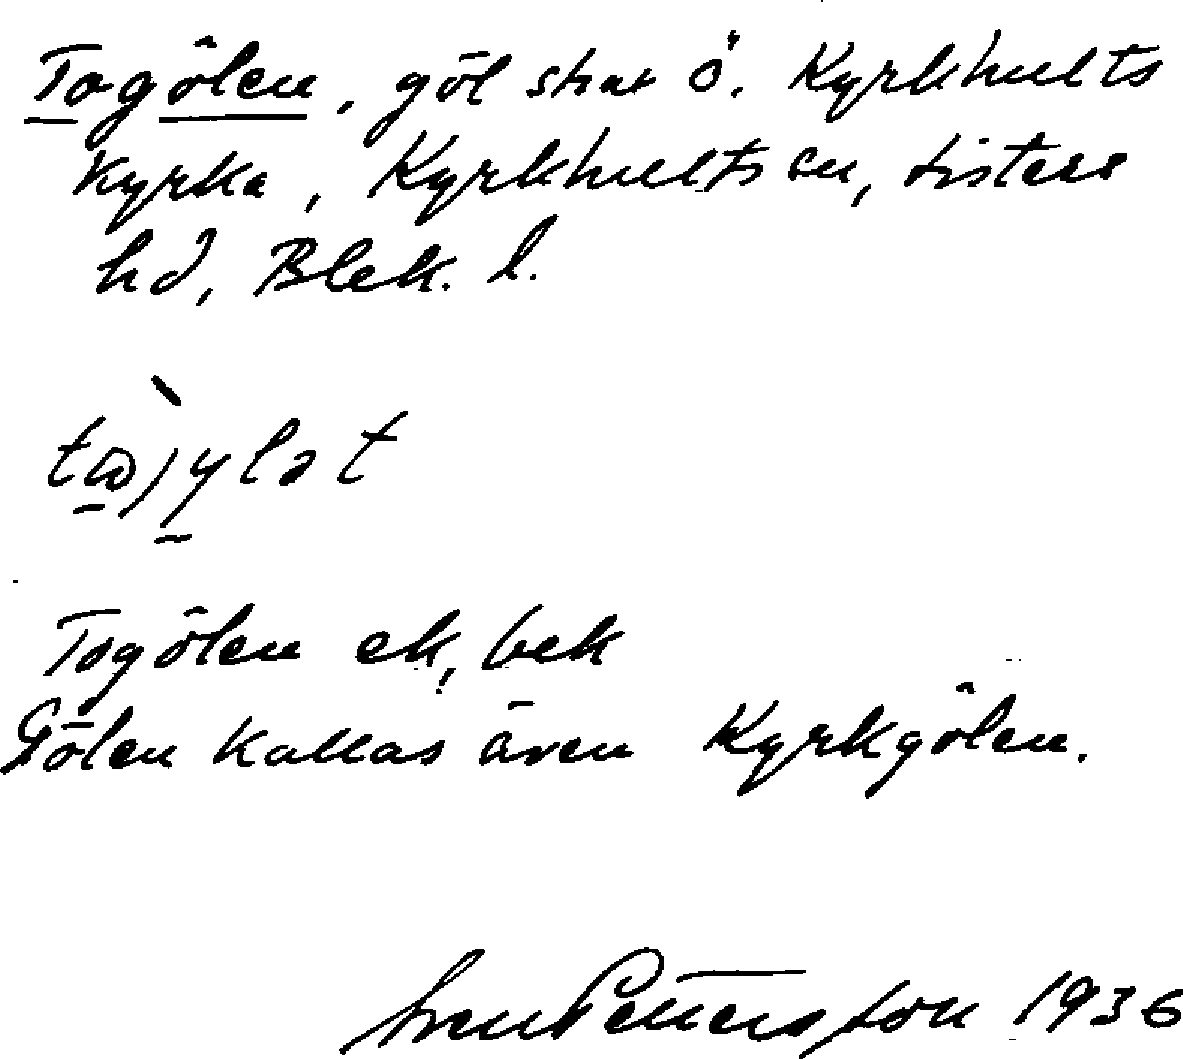 Togölen, göl strax ö. Kyrkhults
kyrka, Kyrkhults sn, Listers
hd, Blek. l.
Togölen ek, bek
Gölen kallas även Kyrkgölen.
Sven Pettersson 1936